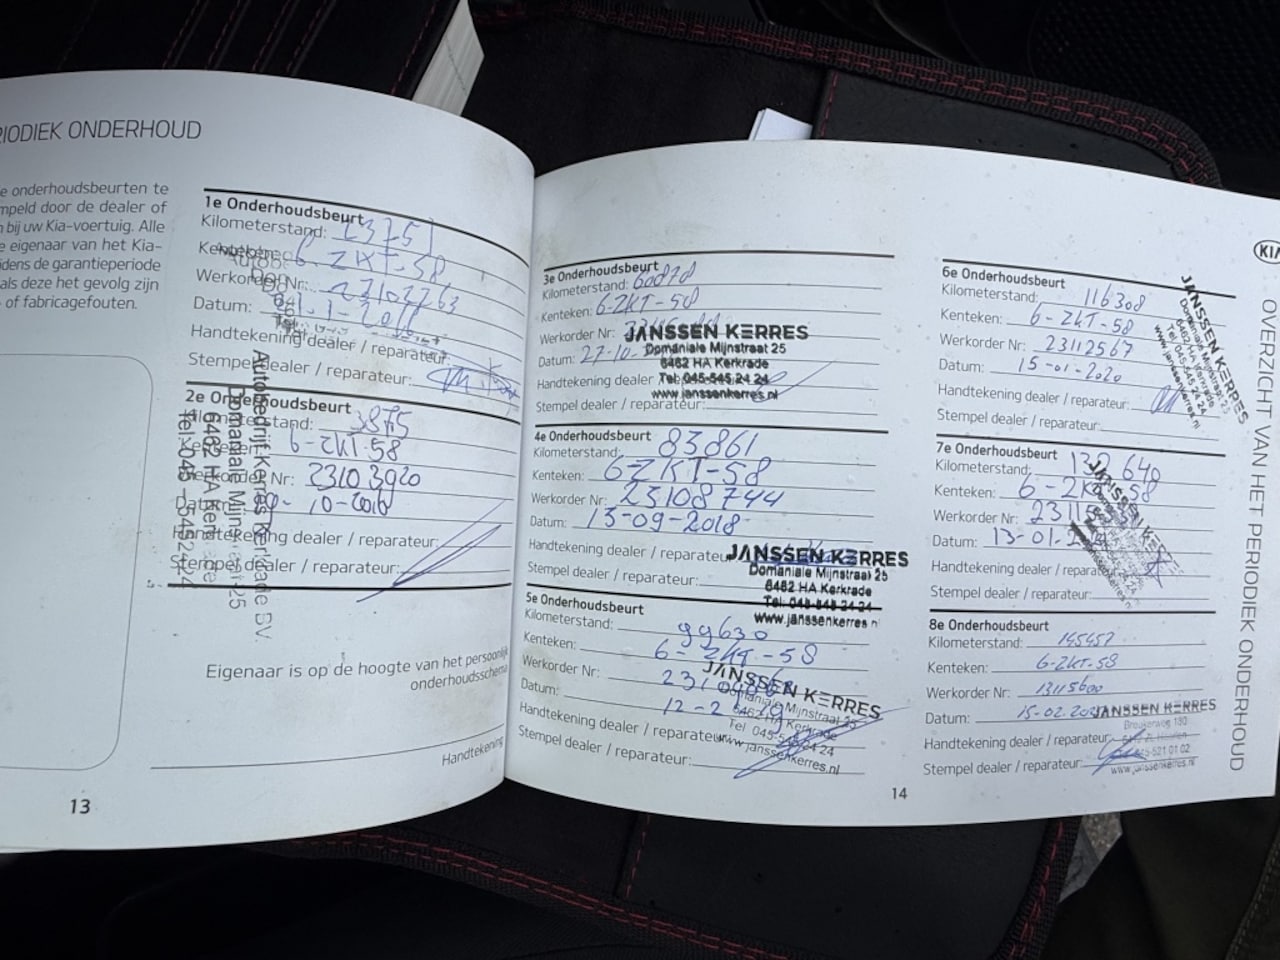 RIODIEK ONDERHOUD
e onderhoudsbeurten te
mpeld door de dealer of
n bij uw Kia-voertuig. Alle
e eigenaar van het Kia-
idens de garantieperiode
als deze het gevolg zijn
- of fabricagefouten.
1e Onderhoudsbeurt
Kilometerstand:
Kenteken: 6-ZKT-58
Werkorder Nr: 23102763
Datum:
Handtekening dealer / reparateur:
Stempel dealer / reparateur:
2e Onderhoudsbeurt
Kilometerstand:
Kenteken: 6-ZKT-58
Werkorder Nr: 23103920
Datum: -10-2016
Handtekening dealer / reparateur:
Stempel dealer / reparateur:
Autobedrijf Kerres Kerkrade BV
Domaniale Mijnstraat 25
6462 HA Kerkrade
Tel. 045-5452424
Eigenaar is op de hoogte van het persoonlijk
onderhoudsschema
Handtekening
13
3e Onderhoudsbeurt
Kilometerstand: 60878
Kenteken: 6-ZKT-58
Werkorder Nr:
Datum: 27-10-
Handtekening dealer
Stempel dealer / reparateur:
JANSSEN KERRES
Domaniale Mijnstraat 25
6462 HA Kerkrade
Tel: 045-545 24 24
www.janssenkerres.nl
4e Onderhoudsbeurt
Kilometerstand: 83861
Kenteken: 6-ZKT-58
Werkorder Nr: 23108744
Datum: 13-09-2018
Handtekening dealer / reparateur
Stempel dealer / reparateur:
JANSSEN KERRES
Domaniale Mijnstraat 25
6462 HA Kerkrade
Tel: 045-545 24 24
www.janssenkerres.nl
5e Onderhoudsbeurt
Kilometerstand: 99630
Kenteken: 6-ZKT-58
Werkorder Nr:
Datum: 12-2
Handtekening dealer / reparateur
Stempel dealer / reparateur:
JANSSEN KERRES
Domaniale Mijnstraat 25
6462 HA Kerkrade
Tel 045-545 24 24
www.janssenkerres.nl
14
KIA
6e Onderhoudsbeurt
Kilometerstand: 116308
Kenteken: 6-ZKT-58
Werkorder Nr: 23112567
Datum: 15-01-2020
Handtekening dealer / reparateur:
Stempel dealer / reparateur:
JANSSEN KERRES
Domaniale Mijnstraat 25
6462 HA Kerkrade
Tel: 045-545 24 24
www.janssenkerres.nl
7e Onderhoudsbeurt
Kilometerstand: 130640
Kenteken: 6-ZKT-58
Werkorder Nr:
Datum: 13-01-
Handtekening dealer / reparateur
Stempel dealer / reparateur:
JANSSEN KERRES
8e Onderhoudsbeurt
Kilometerstand: 145457
Kenteken: 6-ZKT-58
Werkorder Nr: 13115600
Datum: 15-02-
Handtekening dealer / reparateur
Stempel dealer / reparateur:
JANSSEN KERRES
521 01 02
www.janssenkerres.nl
OVERZICHT VAN HET PERIODIEK ONDERHOUD